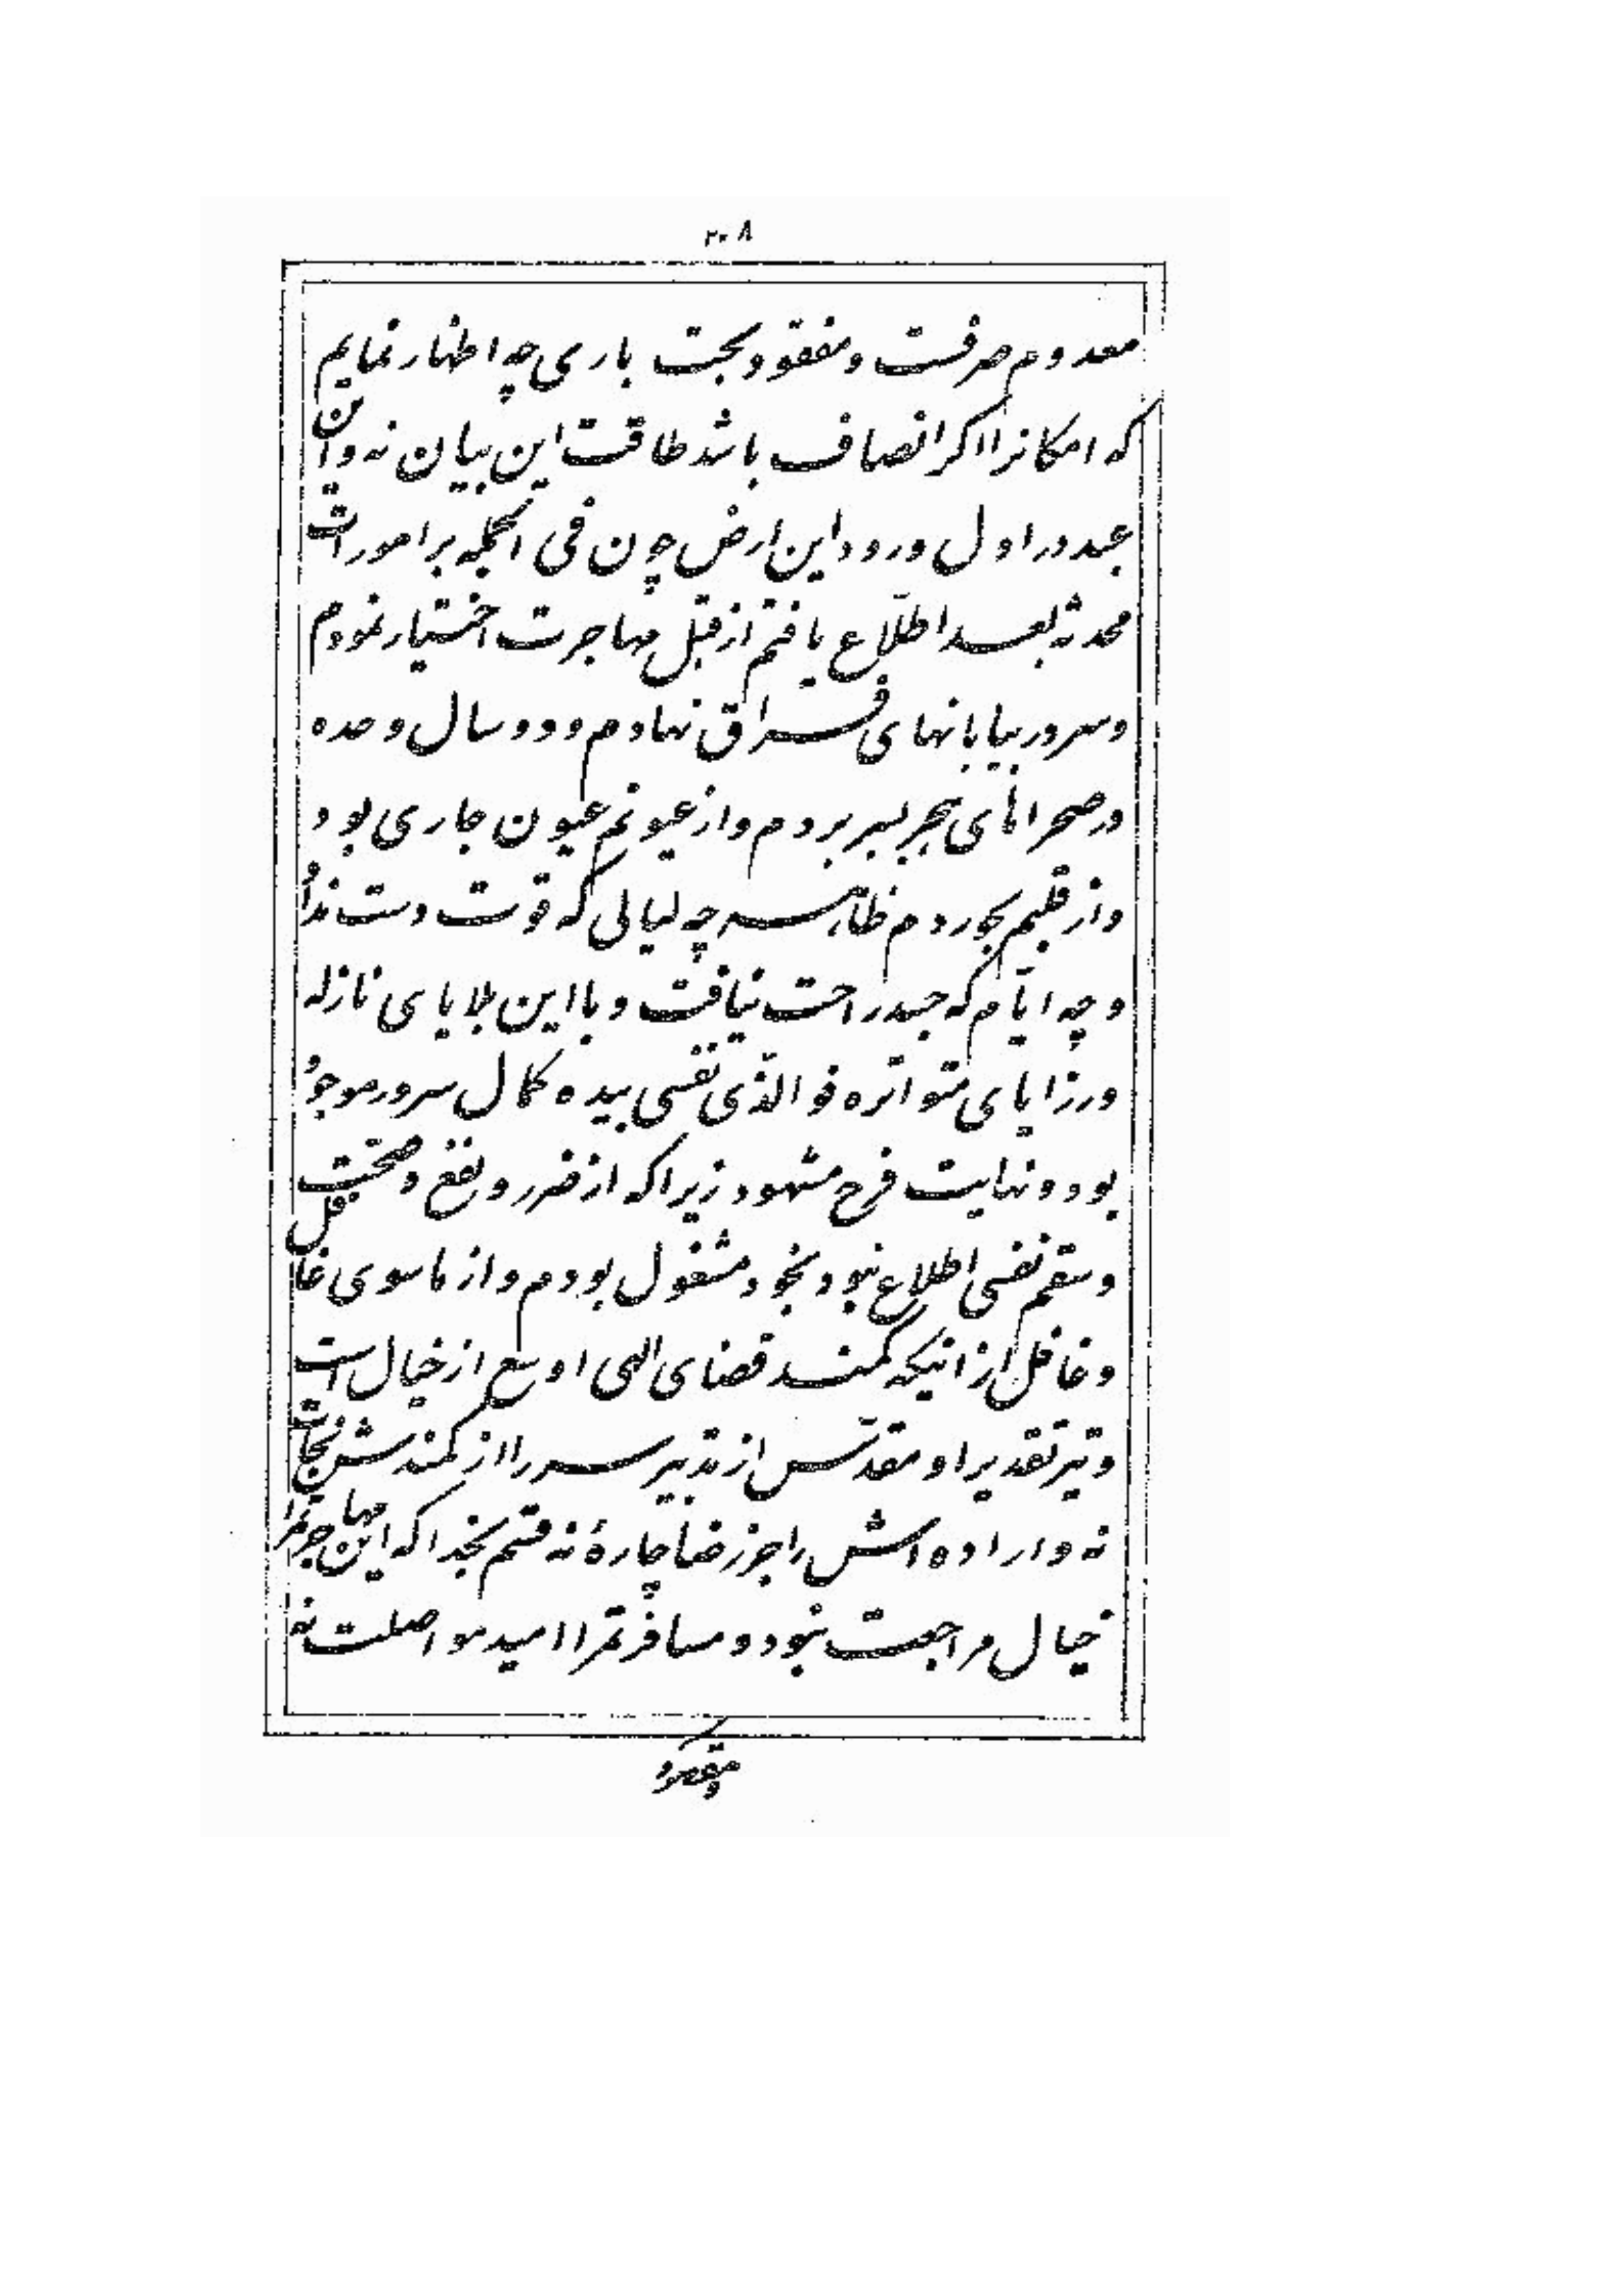 ۲۰۸
معدوم صرفست و مفقود بحت باری چه اظهار نمایم
که امکانرا اگر انصاف باشد طاقت این بیان نه و این
عبد در اول ورود این ارض چون فی الجمله بر امورات
محدثه بعد اطّلاع یافتم از قبل مهاجرت اختیار نمودم
و سر در بیابانهای فراق نهادم و دو سال وحده
در صحراهای هجر بسر بردم و از عیونم عیون جاری بود
و از قلبم بحور دم ظاهر چه لیالی که قوت دست نداد
و چه ایّام که جسد راحت نیافت و با این بلایای نازله
و رزایای متواتره فو الّذی نفسی بیده کمال سرور موجود
بود و نهایت فرح مشهود زیرا که از ضرر و نفع و صحّت
و سقم نفسی اطلاع نبود بخود مشغول بودم و از ماسوی غافل
و غافل از اینکه کمند قضای الهی اوسع از خیال است
و تیر تقدیر او مقدّس از تدبیر سر را از کمندش نجات
نه و اراده اش را جز رضا چارهٔ نه قسم بخدا که این مهاجرتم را
خیال مراجعت نبود و مسافرتم را امید مواصلت نه
و مقصود